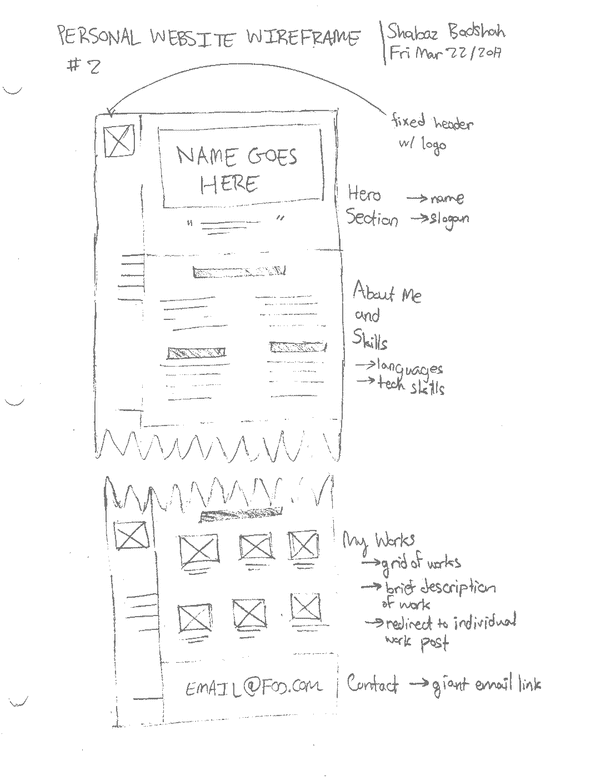 PERSONAL WEBSITE WIREFRAME
#2
Shabaz Badshah
Fri Mar 22/2019
fixed header
w/ logo
NAME GOES
HERE
" "
Hero → name
Section → slogan
About Me
and
Skills
→ languages
→ tech skills
My Works
→ grid of works
→ brief description
of work
→ redirect to individual
work post
EMAIL@FOO.COM
Contact → giant email link